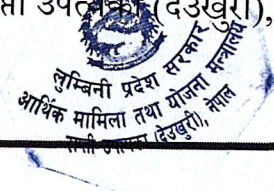 उपत्यका (देउखुरी),
लुम्बिनी प्रदेश सरकार
आर्थिक मामिला तथा योजना मन्त्रालय
राप्ती उपत्यका (देउखुरी), नेपाल